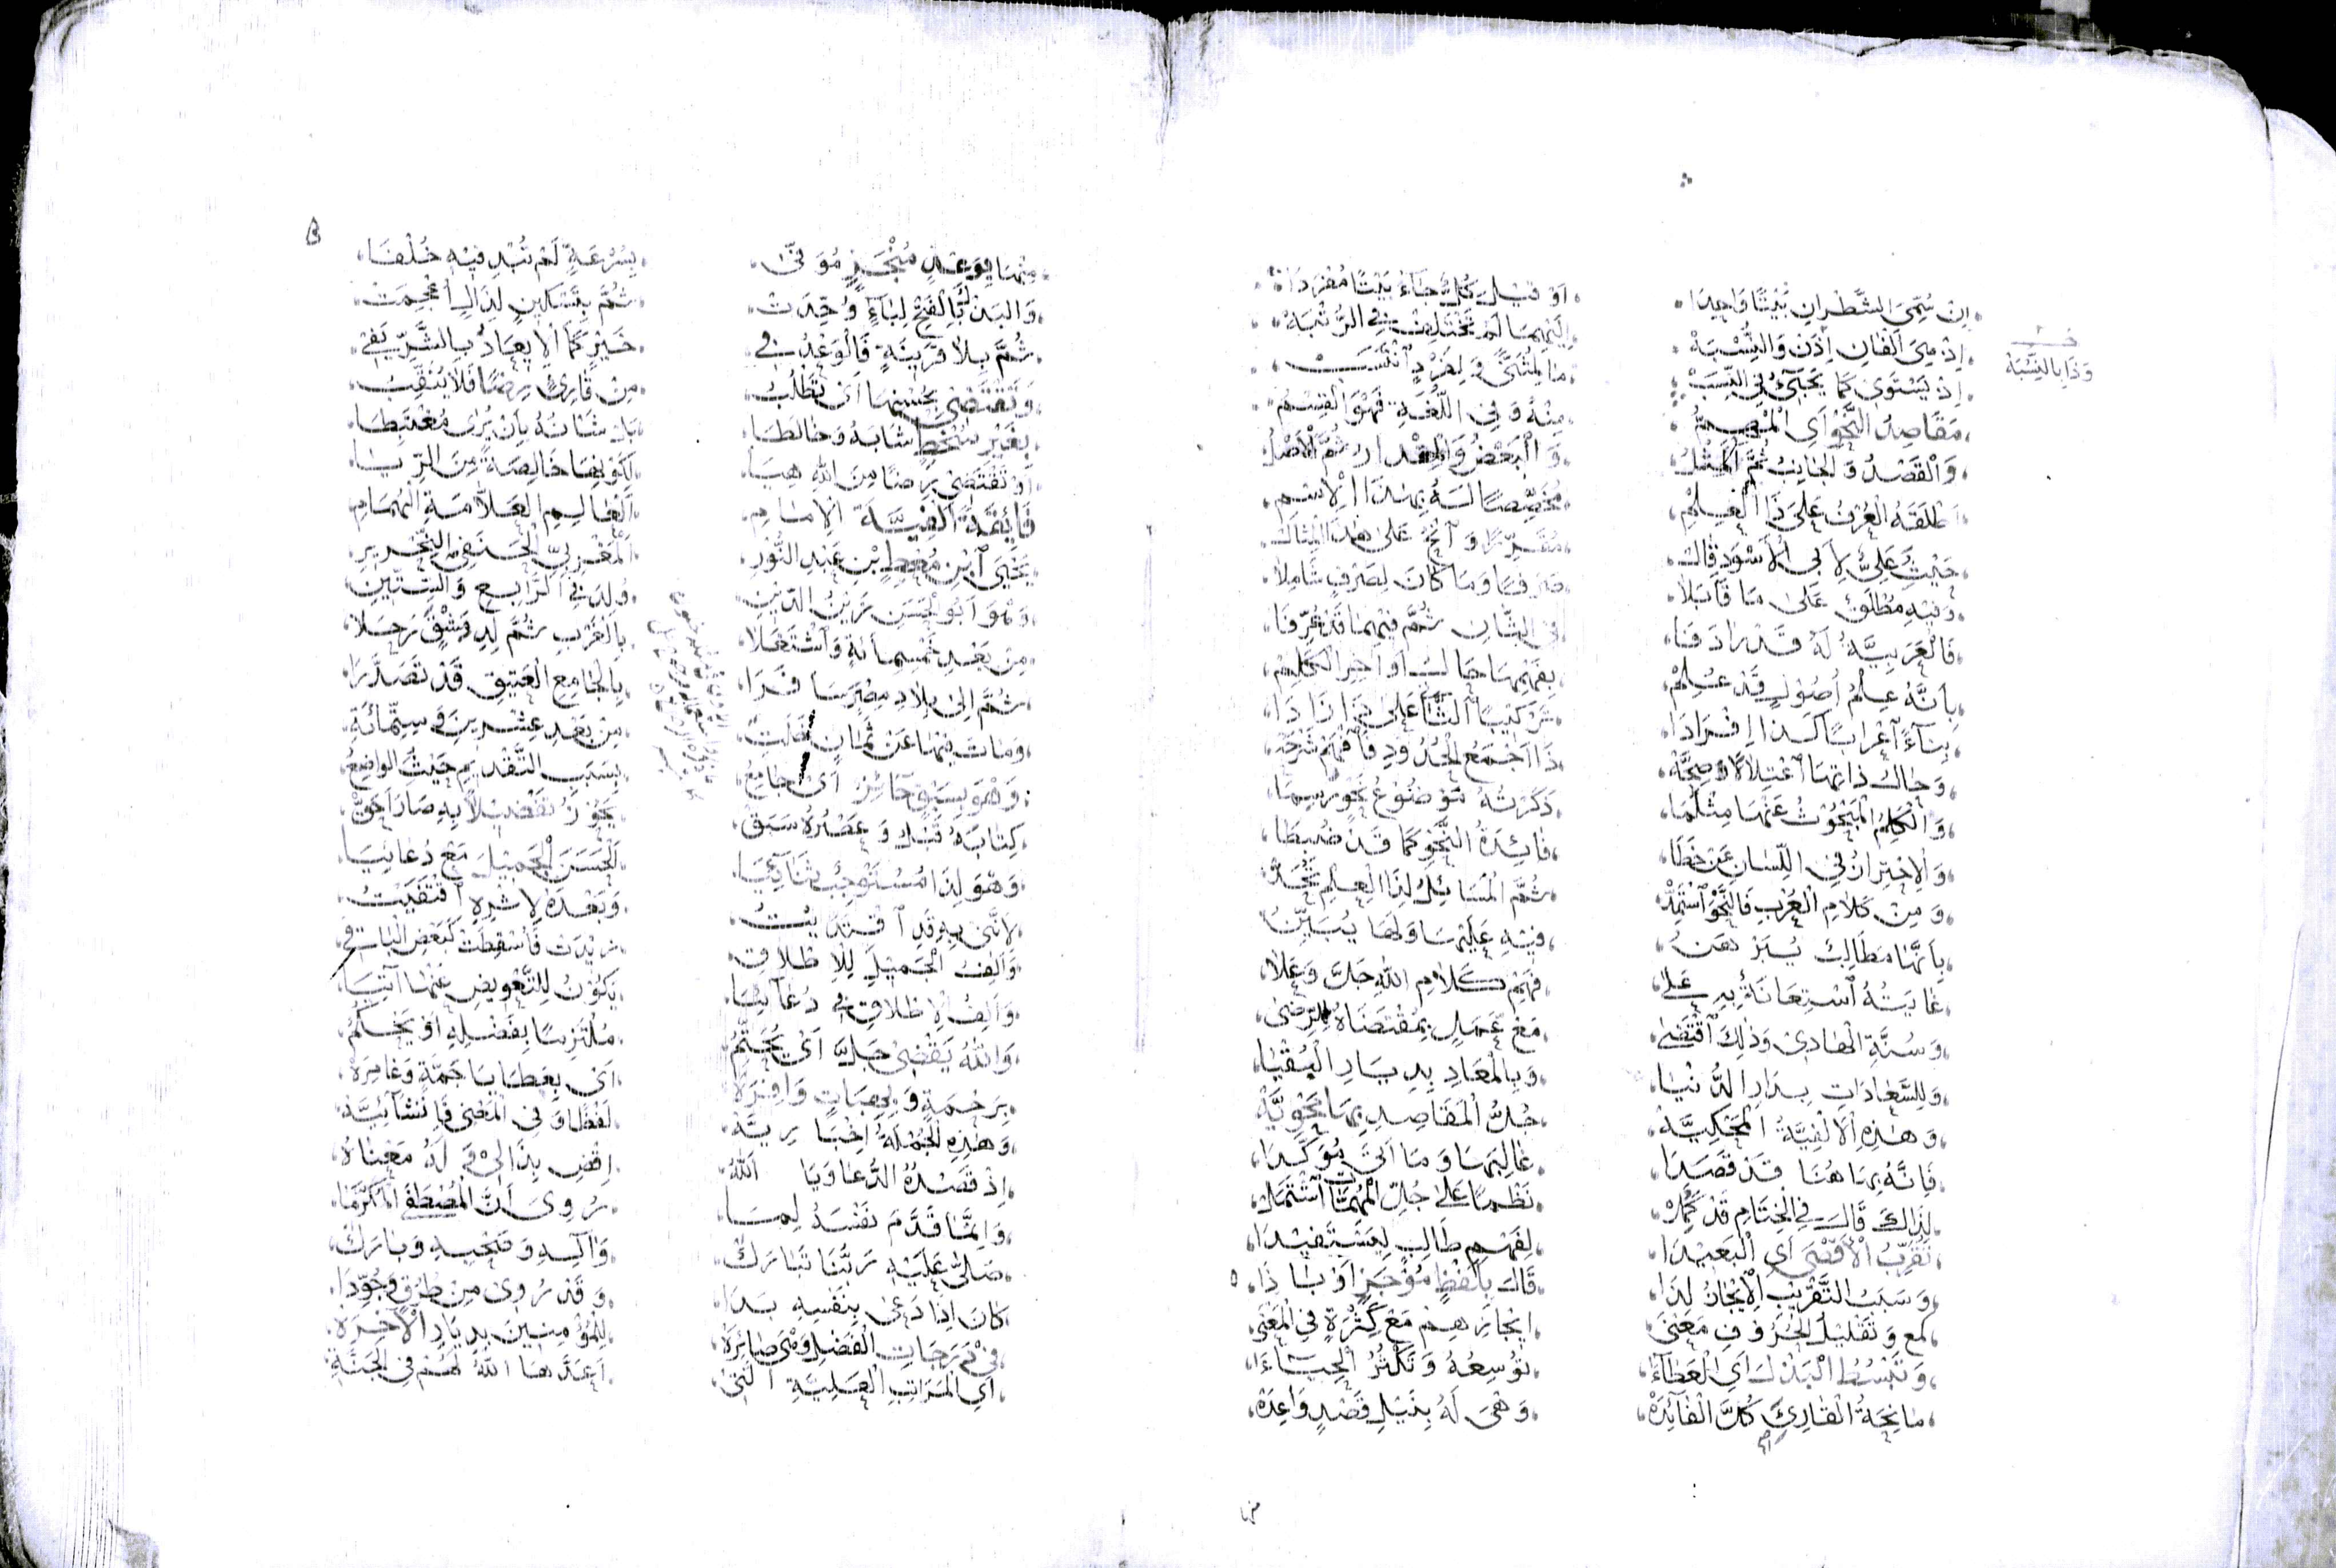 إِنْ سُمِّيَ الشَّطْرَانِ بَيْتًا وَاحِدَا أَوْ قِيلَ كُلٌّ جَاءَ بَيْتًا مُفْرَدَا
إِذْ هِيَ أَلْفَانِ إِذَنْ وَالنِّسْبَهْ إِلَيْهِمَا لَمْ تَخْتَلِفْ فِي الرُّتْبَهْ
وَذَا بِالنِّسْبَهْ
إِذْ يَسْتَوِي كَمَا يَجِيءُ فِي النَّسَبْ مَا لِمُثَنًّى وَلِفَرْدٍ انْتَسَبْ
مَقَاصِدُ النَّحْوِ أَيِ الْمُهِمُّ مِنْهُ وَفِي اللُّغَةِ فَهْوَ الْقِسْمُ
وَالْقَصْدُ وَالْجَانِبُ ثُمَّ الْمِثْلُ وَالْبَعْضُ وَالْمِقْدَارُ ثُمَّ الْأَصْلُ
أَطْلَقَهُ الْعُرْفُ عَلَى ذَا الْعِلْمِ مُخَصِّصًا لَهُ بِهٰذَا الْاِسْمِ
حَيْثُ عَلِيٌّ لِأَبِي الْأَسْوَدِ قَالْ وَانْحُ عَلَى هٰذَا الْمِثَالْ
وَفِيهِ مُطْلَقٌ عَلَى مَا قَابَلَا صَرْفًا وَمَا كَانَ لِصَرْفٍ شَامِلَا
فَالْعَرَبِيَّةُ لَهُ قَدْ رَادَفَا فِي الثَّانِ ثُمَّ فِيهِمَا قَدْ عُرِّفَا
بِأَنَّهُ عِلْمُ أُصُولٍ قَدْ عُلِمْ بِفَهْمِهَا حَالُ أَوَاخِرِ الْكَلِمْ
بِنَاءً اعْرَابًا كَذَا إِفْرَادَا تَرْكِيبًا الثَّا عَلَى ذَا زَادَا
وَحَالُ ذَاتِهَا اعْتِلَالًا وَصِحَّهْ ذَا أَجْمَعُ الْحُدُودِ فَافْهَمْ شَرْحَهْ
وَالْكَلِمُ الْمَبْحُوثُ عَنْهَا مِثْلَمَا ذَكَرْتُهُ مَوْضُوعُ نَحْوٍ رُسِمَا
وَالْاِحْتِرَازُ فِي اللِّسَانِ عَنْ خَطَا فَائِدَةُ النَّحْوِ كَمَا قَدْ ضُبِطَا
وَمِنْ كَلَامِ الْعُرْبِ فَالنَّحْوُ اسْتُمِدّْ ثُمَّ الْمَسَائِلُ لِذَا الْعِلْمِ تُحَدّْ
بِأَنَّهَا مَطَالِبٌ يُبَرْهَنُ فِيهِ عَلَيْهَا وَلَهَا يُبَيَّنُ
غَايَتُهُ اسْتِعَانَةٌ بِهِ عَلَى فَهْمِ كَلَامِ اللهِ جَلَّ وَعَلَا
وَسُنَّةِ الْهَادِي وَذٰلِكَ اقْتَضَى مَعْ عَمَلٍ بِمُقْتَضَاهُ لِلرِّضَى
وَلِلسَّعَادَاتِ بِدَارِ الدُّنْيَا وَبِالْمَعَادِ بِدِيَارِ الْبُقْيَا
وَهٰذِهِ الْأَلْفِيَّةُ الْمَحْكِيَّهْ جُلُّ الْمَقَاصِدِ بِهَا مَحْوِيَّهْ
فَإِنَّهُ بِمَا هُنَا قَدْ قَصَدَا غَالِبَهَا وَمَا أَتَى مُؤَكَّدَا
لِذَاكَ قَالَ فِي الْخِتَامِ قَدْ كَمَلْ نَظْمًا عَلَى جُلِّ الْمُهِمَّاتِ اشْتَمَلْ
تُقَرِّبُ الْأَقْصَى أَيِ الْبَعِيدَا لِفَهْمِ طَالِبٍ لِيَسْتَفِيدَا
وَسَبَبُ التَّقْرِيبِ الْإِيجَازُ لِذَا قَالَ بِلَفْظٍ مُوجَزٍ أَوْ بَا ذَا
كَمَعْ وَتَقْلِيلُ الْحُرُوفِ مَعْنَى إِيجَازِهِمْ مَعْ كَثْرَةٍ فِي الْمَعْنَى
وَتَبْسُطُ الْبَذْلَ أَيِ الْعَطَاءَ تُوسِعُهُ وَتُكْثِرُ الْحِبَاءَ
مَانِحَةُ الْقَارِئِ كُلَّ الْفَائِدَهْ وَهْيَ لَهُ بِنَيْلِ قَصْدٍ وَاعِدَهْ
مِنْهَا بِوَعْدٍ مُنْجَزٍ مُوَفَّى بِسُرْعَةٍ لَمْ تُبْدِ فِيهِ خُلْفَا
وَالْبَذْلُ بِالْفَتْحِ لِبَاءٍ وُحِّدَتْ ثُمَّ بِتَسْكِينٍ لِذَالٍ أُعْجِمَتْ
ثُمَّ بِلَا قَرِينَةٍ فَالْوَعْدُ فِي خَيْرٍ كَمَا الْإِيعَادُ بِالشَّرِّ يَفِي
وَتَقْتَضِي بِحُسْنِهَا أَيْ تَطْلُبُ مِنْ قَارِئٍ رِضًا فَلَا يُنَقِّبُ
بِغَيْرِ سُخْطٍ شَابَهُ وَخَالَطَا بَلْ شَأْنُهُ بِأَنْ يُرَى مُغْتَبِطَا
أَوْ تَقْتَضِي رِضًا مِنَ اللهِ هِيَا لِكَوْنِهَا خَالِصَةً مِنَ الرِّيَا
فَائِقَةً أَلْفِيَّةَ الْإِمَامِ الْعَالِمِ الْعَلَّامَةِ الْهُمَامِ
يَحْيَى ابْنِ مُعْطٍ بْنِ عَبْدِ النُّورِ الْمَغْرِبِيِّ الْحَنَفِي النِّحْرِيرِ
وَهْوَ أَبُو الْحَسَنِ زَيْنُ الدِّينِ وُلِدَ فِي الرَّابِعِ وَالسِّتِّينِ
مِنْ بَعْدِ خَمْسِمِائَةٍ وَاشْتَغَلَا بِالْغَرْبِ ثُمَّ لِدِمَشْقٍ رَحَلَا
ثُمَّ إِلَى بِلَادِ مِصْرَ سَافَرَا بِالْجَامِعِ الْعَتِيقِ قَدْ تَصَدَّرَا
وَمَاتَ فِيهَا عَنْ ثَمَانٍ خَلَتْ مِنْ بَعْدِ عِشْرِينَ وَسِتِّمِائَةِ
وَهْوَ بِسَبْقٍ حَائِزٌ أَيْ جَامِعُ بِسَبَبِ التَّقْدِيمِ حَيْثُ الْوَاضِعُ
كِتَابَهُ قَبْلُ وَعَصْرُهُ سَبَقْ يَحُوزُ تَفْضِيلًا بِهِ صَارَ أَحَقّْ
وَهْوَ لِذَا مُسْتَوْجِبٌ ثَنَائِيَا الْحَسَنَ الْجَمِيلَ مَعْ دُعَائِيَا
لِأَنَّنِي بِهِ قَدِ اقْتَدَيْتُ وَبَعْدَهُ لِإِثْرِهِ اقْتَفَيْتُ
وَأَلِفُ الْجَمِيلِ لِلْإِطْلَاقِ زِيدَتْ فَأُسْقِطَتْ كَبَعْضِ الْبَاقِي
وَأَلِفُ الْإِطْلَاقِ فِي دُعَائِيَا يَكُونُ لِلتَّعْوِيضِ عَنْهَا آتِيَا
وَاللهُ يَقْضِي جَلَّ أَيْ يُحَتِّمُ مُلْتَزِمًا بِفَضْلِهِ أَوْ يَحْكُمُ
بِرَحْمَةٍ وَبِهِبَاتٍ وَافِرَهْ أَيْ بِعَطَايَا جَمَّةٍ وَغَامِرَهْ
وَهٰذِهِ الْجُمْلَةُ إِخْبَارِيَّهْ لَفْظًا وَفِي الْمَعْنَى فَإِنْشَائِيَّهْ
إِذْ قَصْدُهُ الدُّعَا وَيَا اللهُ اقْضِ بِذَا لِي وَلَهُ مَعْنَاهُ
وَإِنَّمَا قَدَّمَ نَفْسَهُ لِمَا رُوِيَ أَنَّ الْمُصْطَفَى الْمُكَرَّمَا
صَلَّى عَلَيْهِ رَبُّنَا تَبَارَكْ وَآلِهِ وَصَحْبِهِ وَبَارَكْ
كَانَ إِذَا دَعَى بِنَفْسِهِ بَدَا وَقَدْ رُوِي مِنْ طُرُقٍ وَجُوِّدَا
فِي دَرَجَاتِ الْفَضْلِ وَهْيَ صَائِرَهْ لِلْمُؤْمِنِينَ بِدِيَارِ الْآخِرَهْ
أَيِ الْمَرَاتِبِ الْعَلِيَّةِ الَّتِي أَعَدَّهَا اللهُ لَهُمْ فِي الْجَنَّةِ